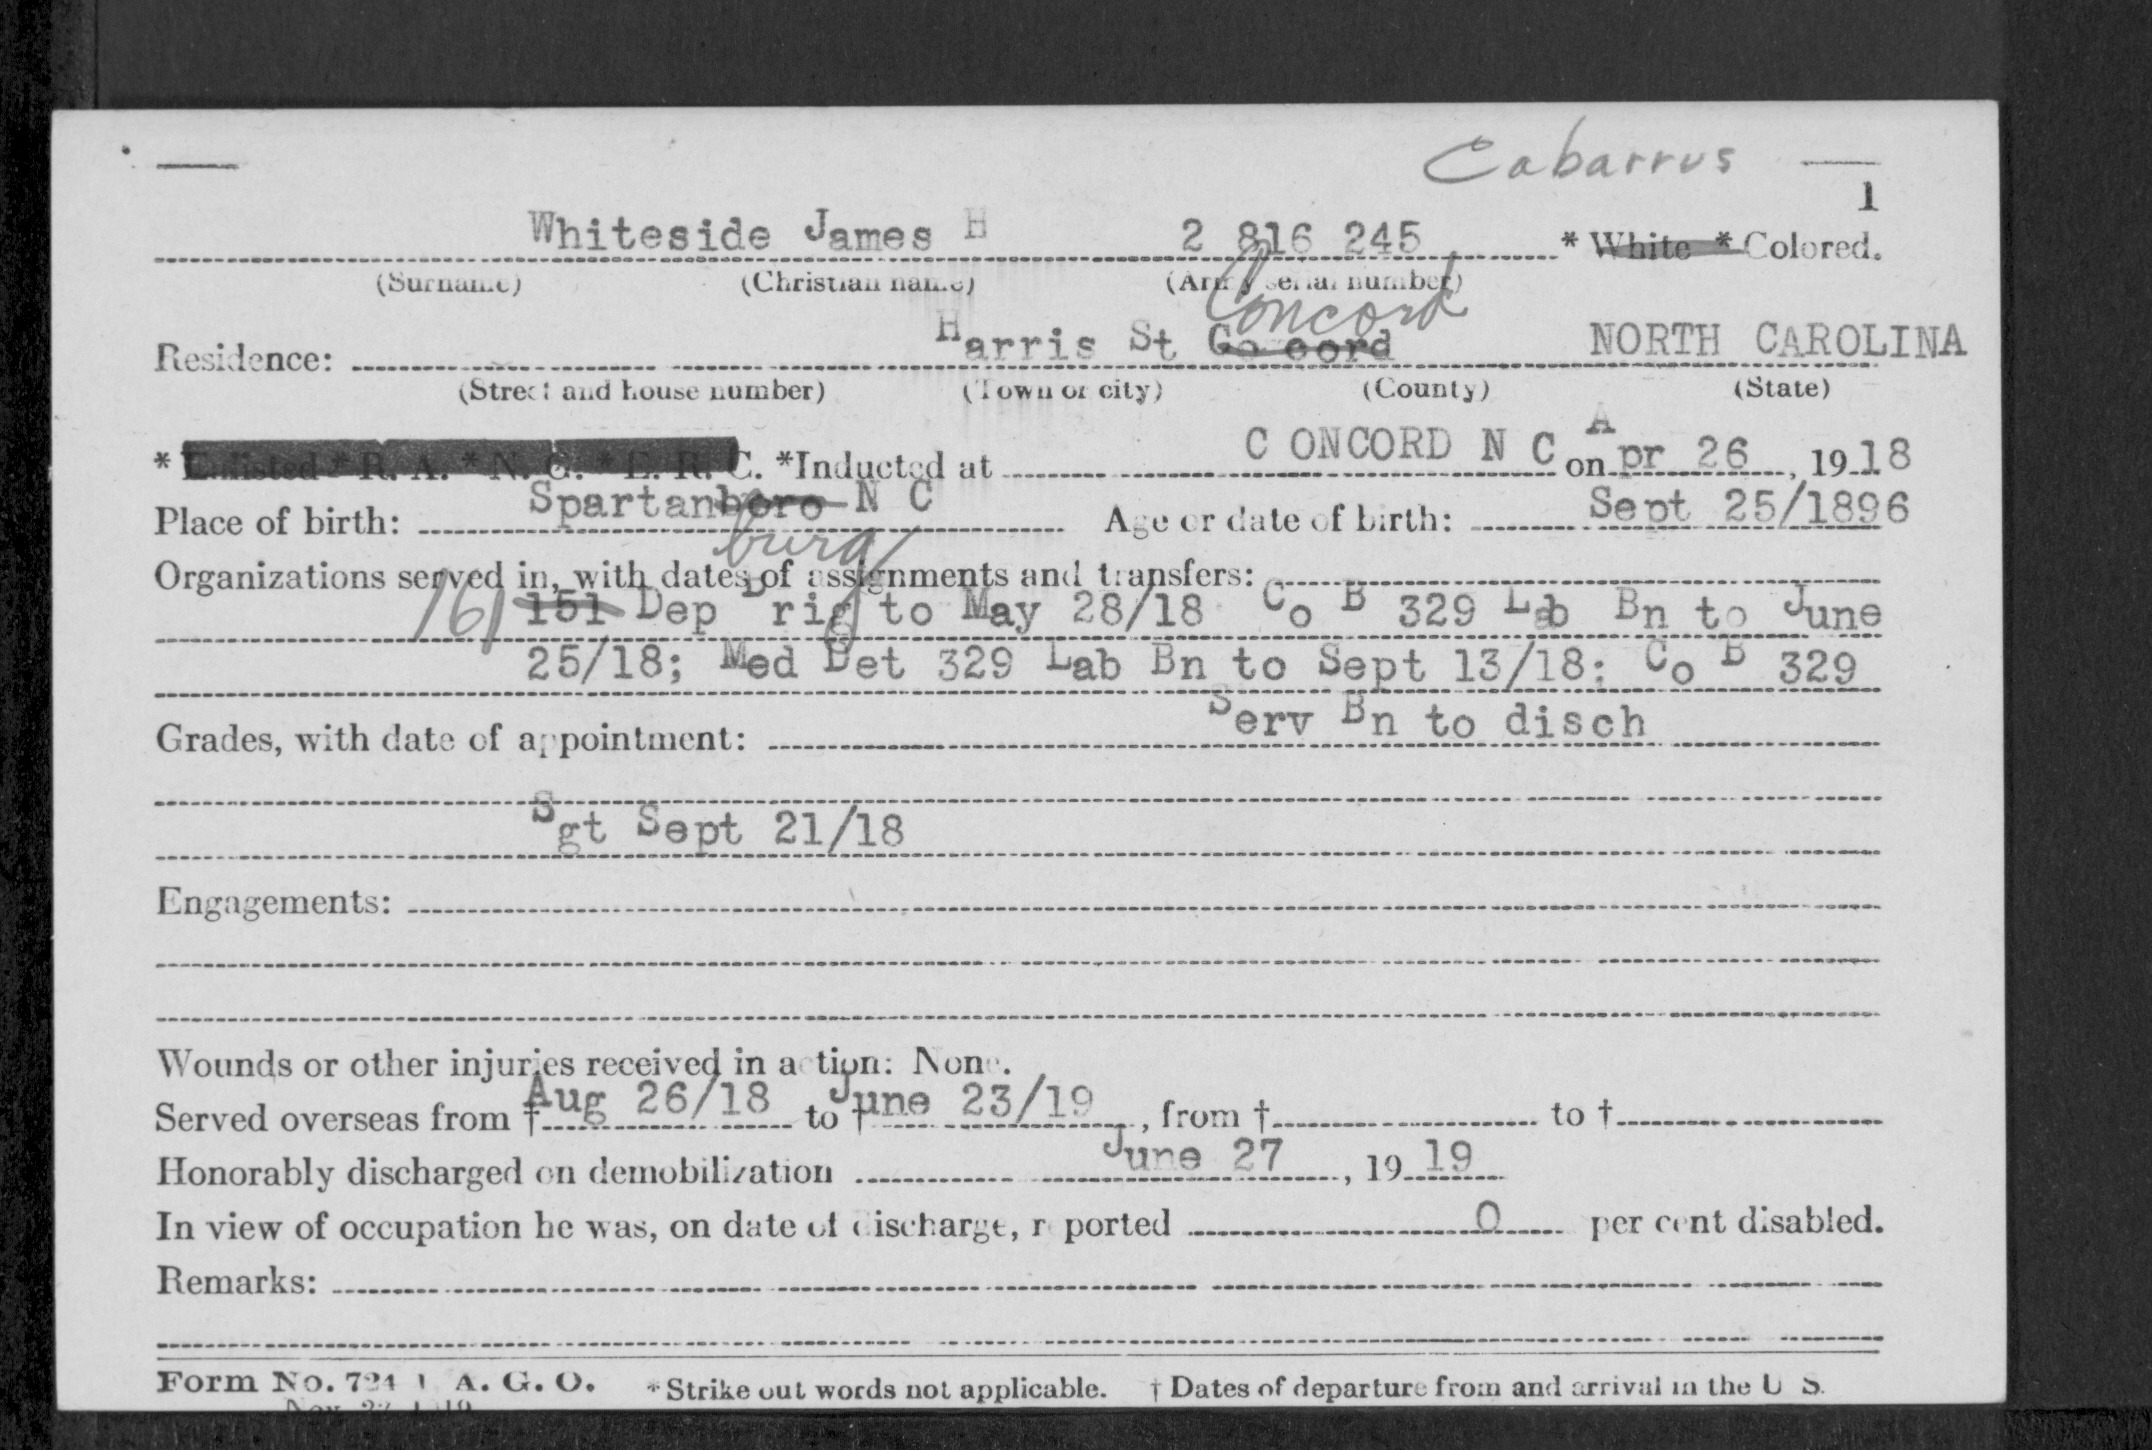 Cabarrus
1
Whiteside James H 2 816 245 * White * Colored.
(Surname) (Christian name) (Army serial number)
Concord
Residence: Harris St Co cord NORTH CAROLINA
(Street and house number) (Town or city) (County) (State)
* Enlisted * R. A. * N. G. * E. R. C. *Inducted at C ONCORD N C on Apr 26, 1918
Place of birth: Spartanboro N C Age or date of birth: Sept 25/1896
burg
Organizations served in, with dates of assignments and transfers:
161 151 Dep Brig to May 28/18 Co B 329 Lab Bn to June
25/18; Med Det 329 Lab Bn to Sept 13/18; Co B 329
Serv Bn to disch
Grades, with date of appointment:
Sgt Sept 21/18
Engagements:
Wounds or other injuries received in action: None.
Served overseas from † Aug 26/18 to † June 23/19, from † to †
Honorably discharged on demobilization June 27, 19 19
In view of occupation he was, on date of discharge, reported 0 per cent disabled.
Remarks:
Form No. 724 1 A. G. O. * Strike out words not applicable. † Dates of departure from and arrival in the U S.